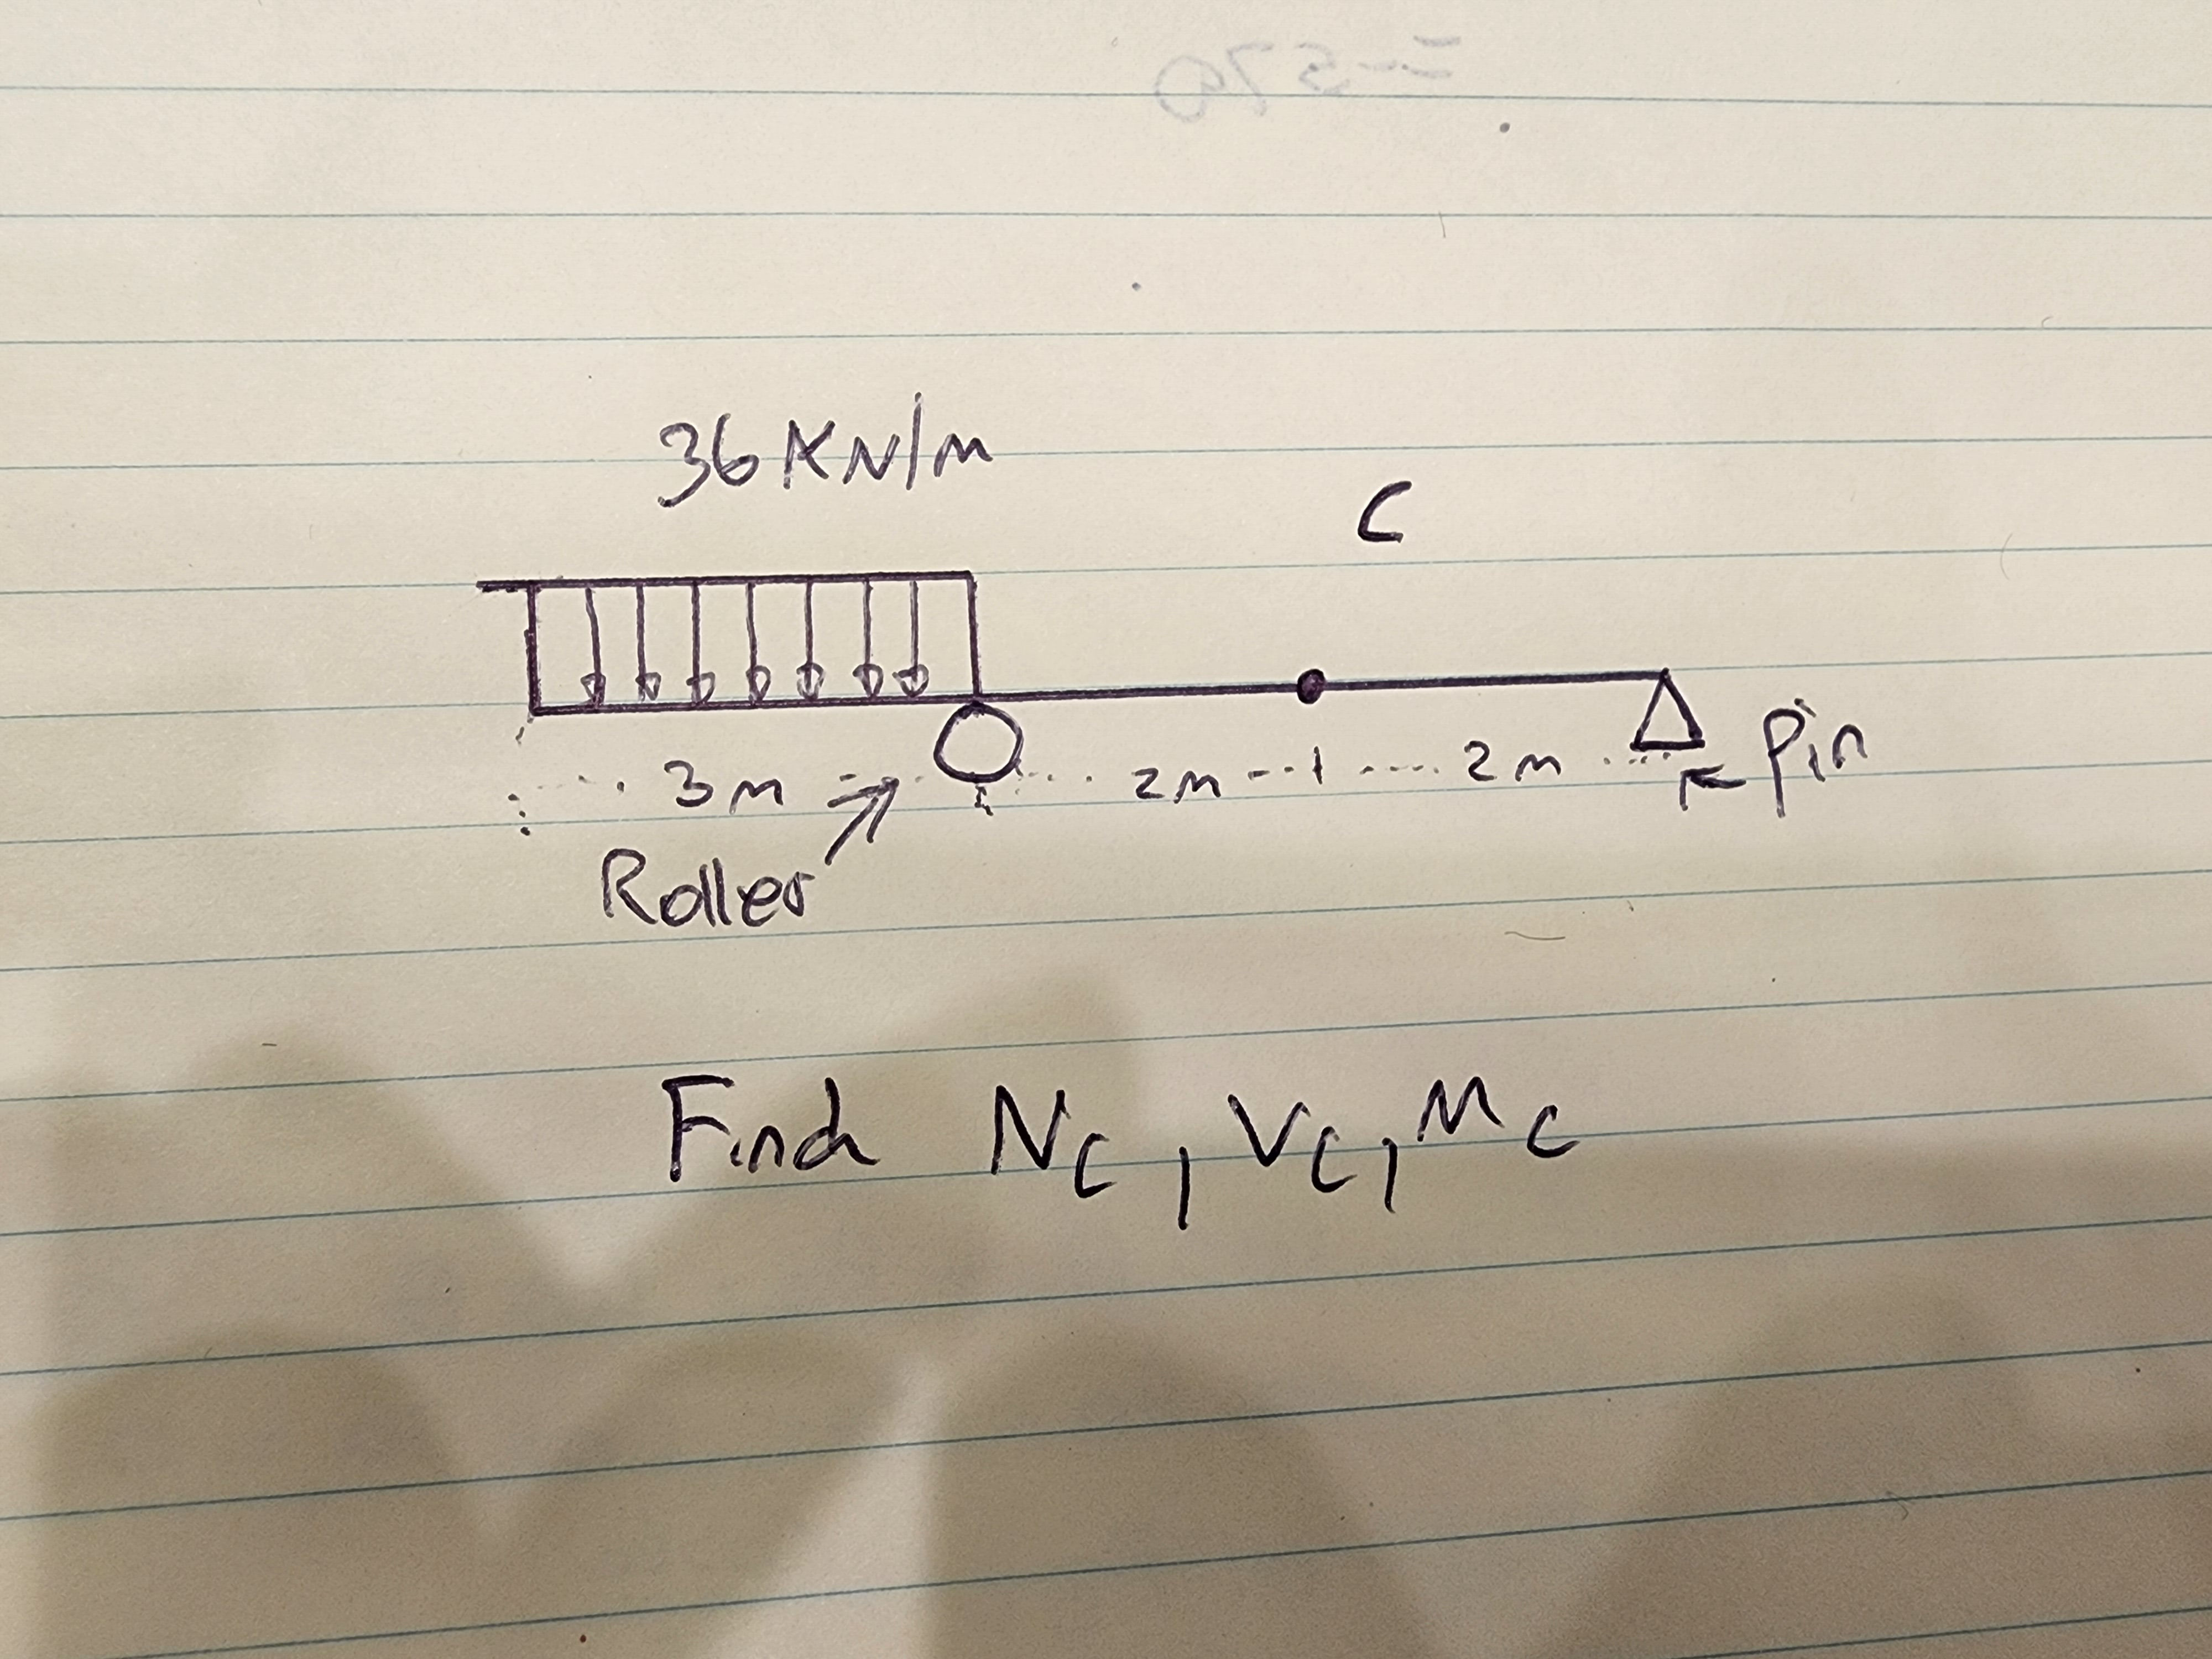 36 KN/m
C
3m 2m 2m Pin
Roller
Find Nc, Vc, Mc